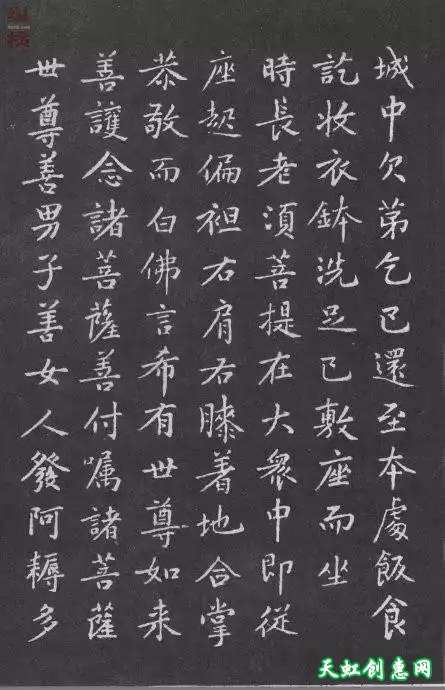 城中次苐乞已還至本處飯食
訖收衣鉢洗足已敷座而坐
時長老湏菩提在大衆中即從
座起偏袒右肩右膝着地合掌
恭敬而白佛言希有世尊如来
善護念諸菩薩善付嘱諸菩薩
世尊善男子善女人發阿耨多
天虹创意网